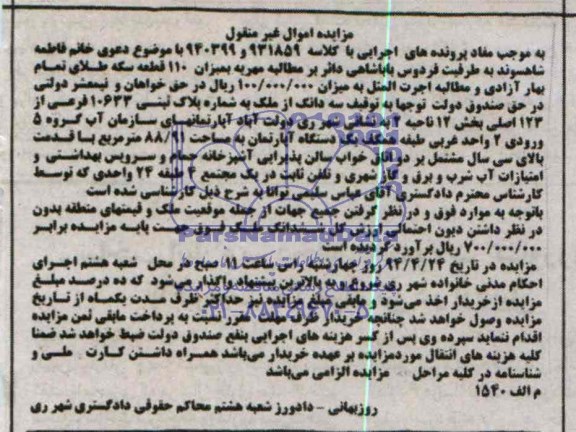 مزایده اموال غیر منقول
به موجب مفاد پرونده های اجرایی با کلاسه ۹۳۱۸۵۹ و ۹۴۰۳۹۹ با موضوع دعوی خانم فاطمه
شاهسوند به طرفیت فردوس باباشاهی دائر بر مطالبه مهریه بمیزان ۱۱۰ قطعه سکه طلای تمام
بهار آزادی و مطالبه اجرت المثل به میزان ۱۰۰/۰۰۰/۰۰۰ ریال در حق خواهان و نیمعشر دولتی
در حق صندوق دولت توجها به توقیف سه دانگ از ملک به شماره پلاک ثبتی ۱۰۶۳۳ فرعی از
۱۲۳ اصلی بخش ۱۲ ناحیه شهر ری دولت آباد آپارتمانهای سازمان آب گروه ۵
ورودی ۲ واحد غربی طبقه همکف یک دستگاه آپارتمان به مساحت ۸۸/۹۱ مترمربع با قدمت
بالای سی سال مشتمل بر دو اتاق خواب سالن پذیرایی آشپزخانه حمام و سرویس بهداشتی و
امتیازات آب شرب و برق و گاز شهری و تلفن ثابت در یک مجتمع ۴ طبقه ۲۴ واحدی که توسط
کارشناس محترم دادگستری آقای عباس سلیمی توانا به شرح ذیل کارشناسی شده است
باتوجه به موارد فوق و در نظر گرفتن جمیع جهات از جمله موقعیت ملک و قیمتهای منطقه بدون
در نظر داشتن دیون احتمالی ارزش کل ششدانگ ملک فوق جهت پایه مزایده برابر
۷۰۰/۰۰۰/۰۰۰ ریال برآورد گردیده است
مزایده در تاریخ ۹۴/۴/۲۴ روز چهارشنبه راس ساعت ۱۱ صبح در محل شعبه هشتم اجرای
احکام مدنی خانواده شهر ری برگزار و به بالاترین پیشنهاد واگذار می‌شود که ده درصد مبلغ
مزایده از خریدار اخذ می‌شود و مابقی مبلغ مزایده نیز حداکثر ظرف مدت یکماه از تاریخ
مزایده وصول خواهد شد چنانچه خریدار ظرف مهلت مقرر نسبت به پرداخت مابقی ثمن مزایده
اقدام ننماید سپرده وی پس از کسر هزینه های اجرایی بنفع صندوق دولت ضبط خواهد شد ضمنا
کلیه هزینه های انتقال موردمزایده بر عهده خریدار می‌باشد همراه داشتن کارت ملی و
شناسنامه در کلیه مراحل مزایده الزامی می‌باشد
م الف ۱۵۴۰
روزبهانی - دادورز شعبه هشتم محاکم حقوقی دادگستری شهر ری
ParsNamadData
۰۲۱-۸۸۳۴۹۶۷۰